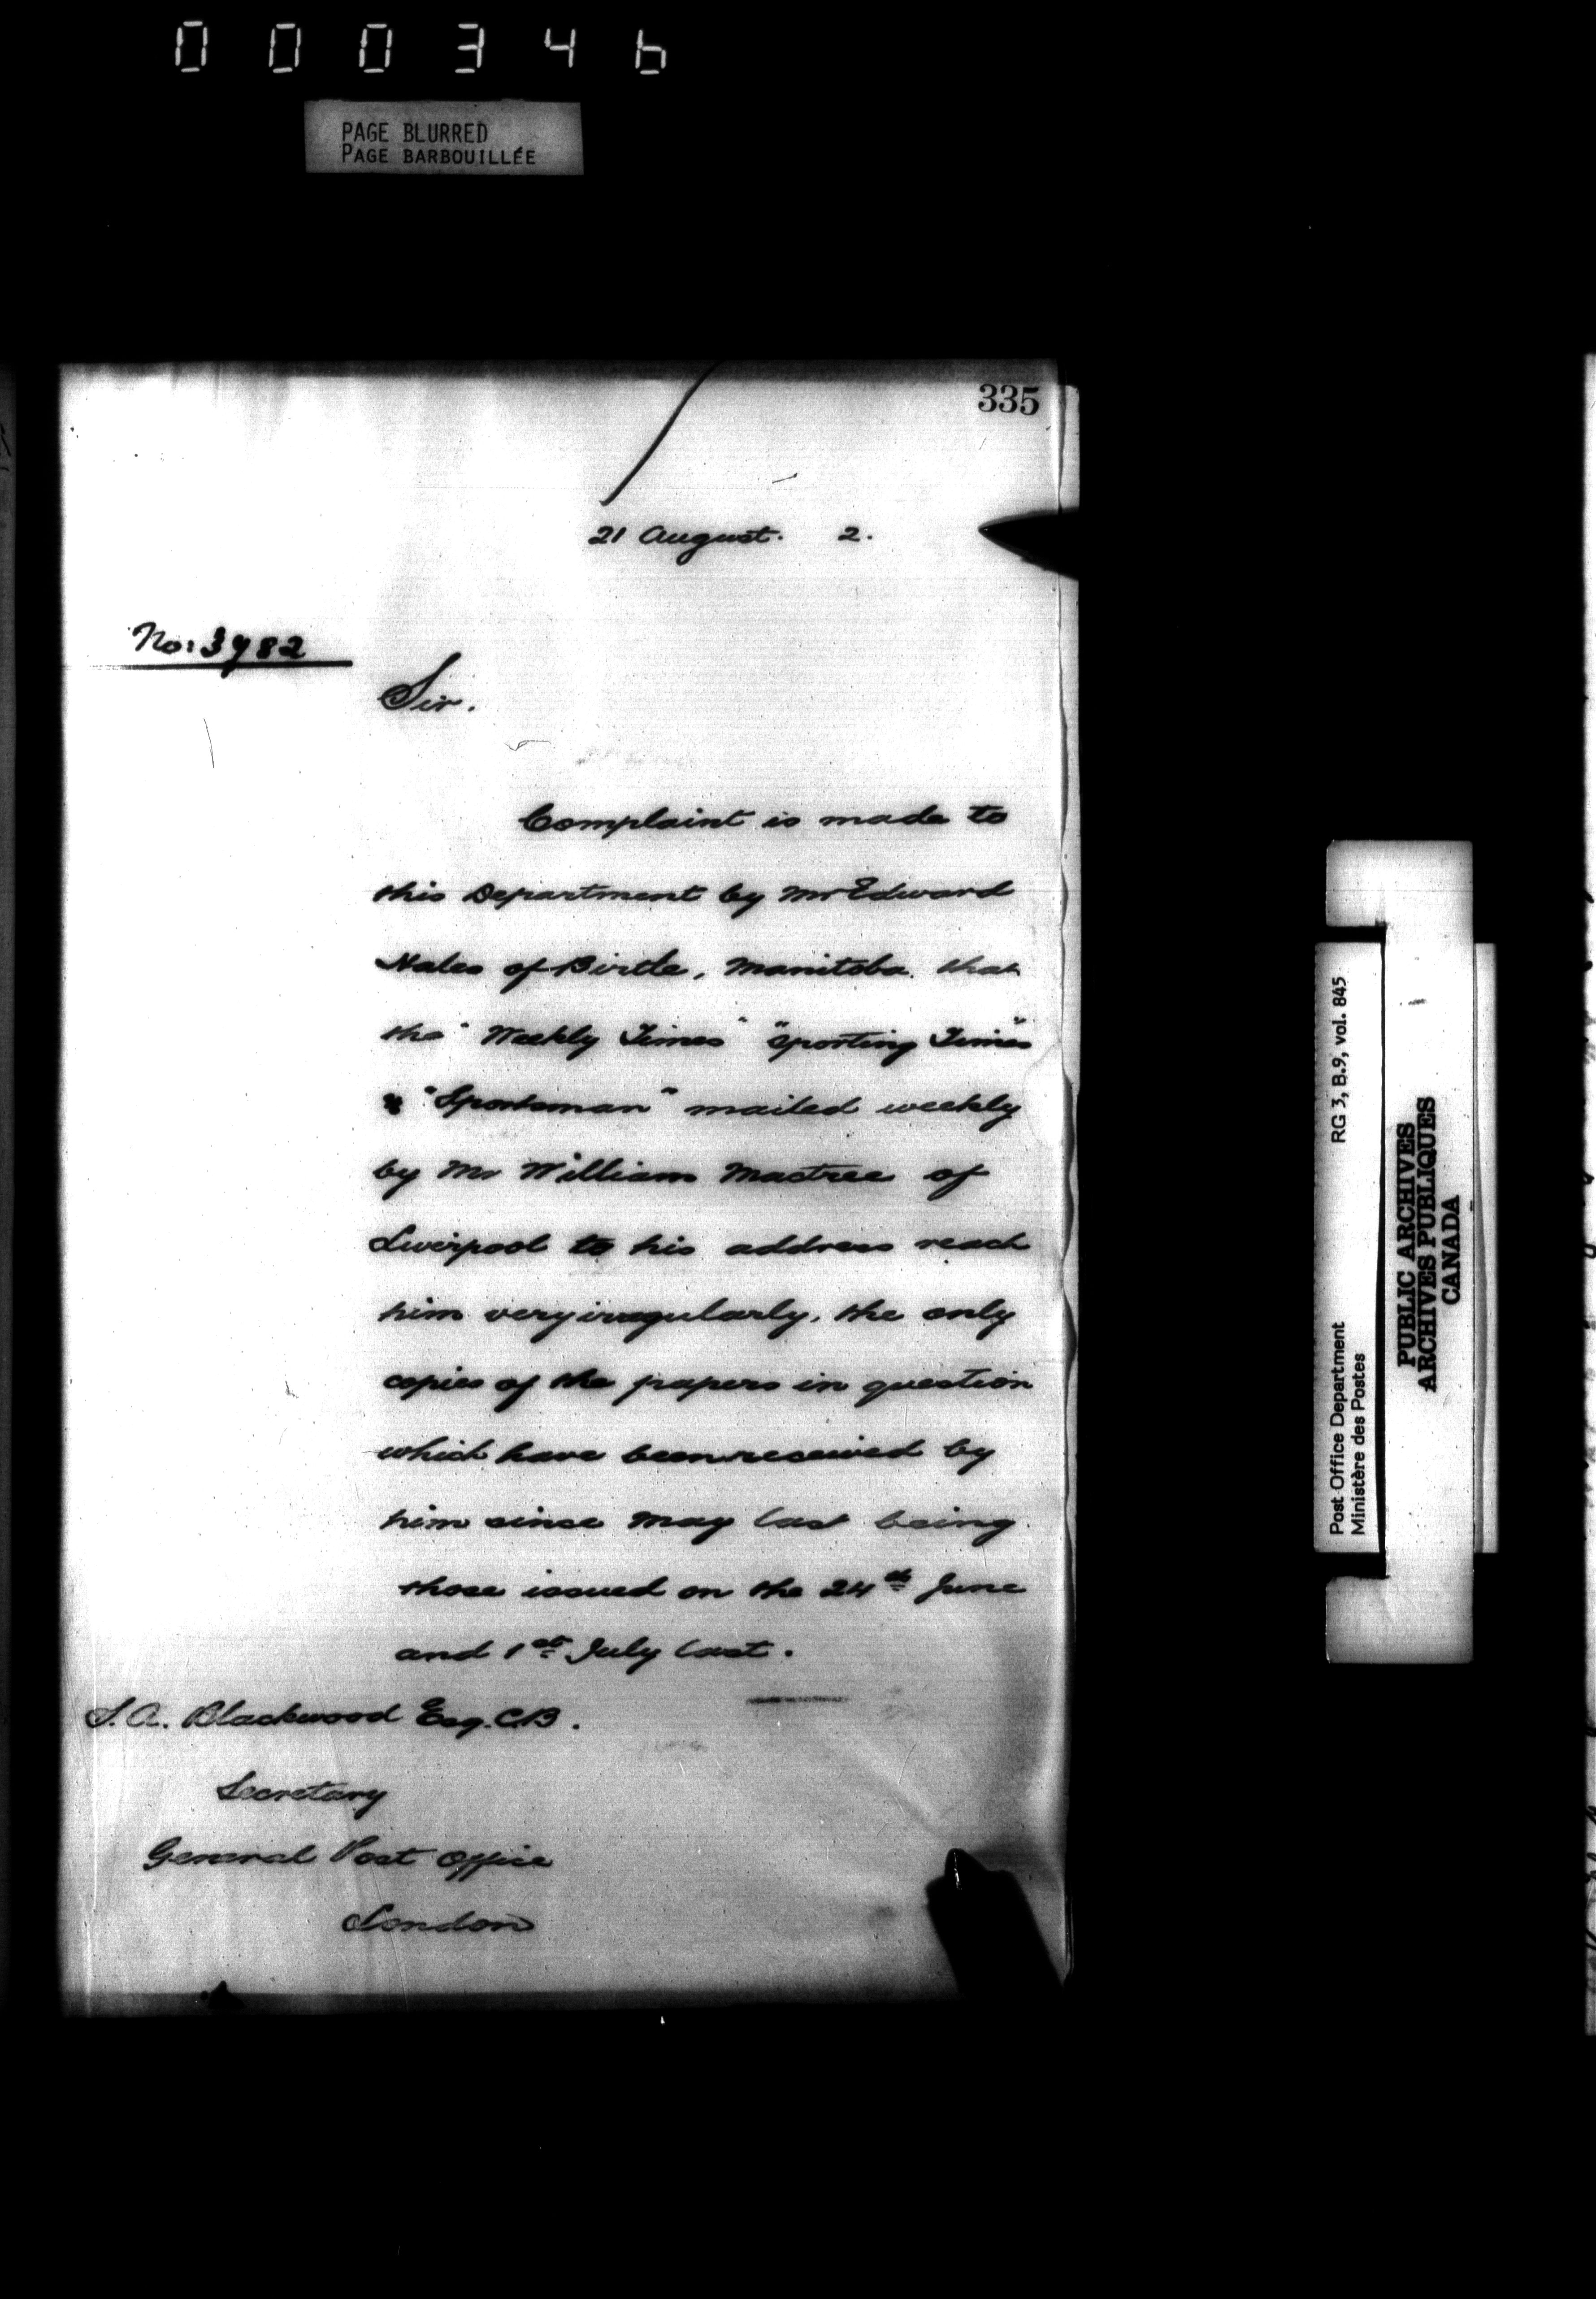 000346
PAGE BLURRED
PAGE BARBOUILLÉE
335
21 August. 2.
No: 3782
Sir.
Complaint is made to
this Department by Mr Edward
Hales of Birtle, Manitoba that
the "Weekly Times" "Sporting Times"
& "Sportsman" mailed weekly
by Mr William Mactree of
Liverpool to his address reach
him very irregularly, the only
copies of the papers in question
which have been received by
him since May last being
those issued on the 24th June
and 1st July last.
S. A. Blackwood Esq. C.B.
Secretary
General Post Office
London
Post Office Department RG 3, B.9, vol. 845
Ministère des Postes
PUBLIC ARCHIVES
ARCHIVES PUBLIQUES
CANADA